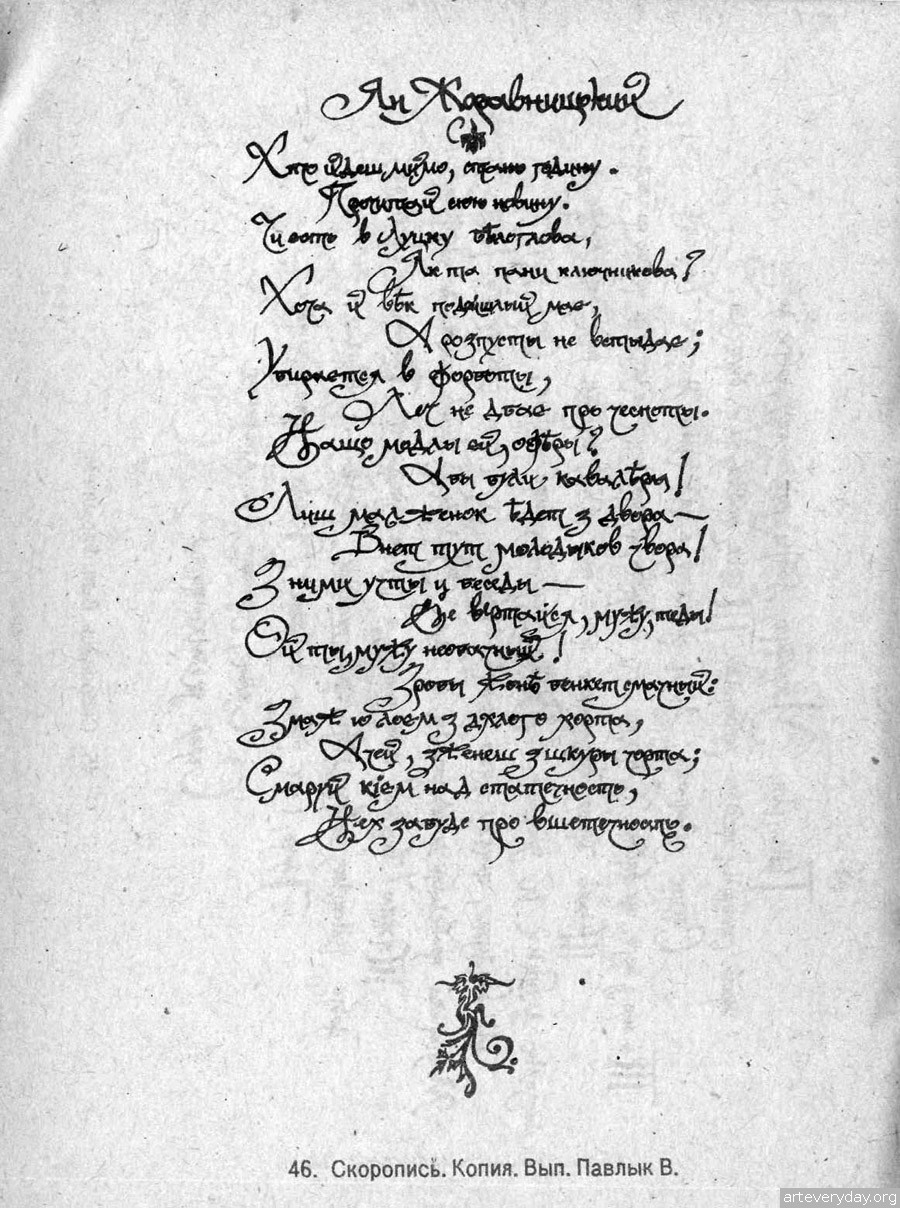 Ян Жоравницкий
Хто йдеш мимо, стань годину.
Прочитай сюю новину.
Чи єсть в Луцку бѣлоглова,
Як та пани ключникова?
Хоча й вѣк подойшлый мае,
А розпусты не встыдае;
Убирается в форботы,
Леч не дбае про чесноты.
Нащо модлы ей, офѣры?
Абы были кавалѣры!
Лиш малженок ѣдет з двора —
Внет тут молодыков чвора!
З ними учты и беседы —
Не вертайся, мужу, теды!
Ой ты, мужу необачный!
Зробы жонѣ бенкет смачный:
Змаж ю лоем з джлого хорта,
Ачей, зженеш з шкуры чорта;
Смаруй кіем над статечность,
Нех забуде про вшетечность.
46. Скоропись. Копия. Вып. Павлык В.
arteveryday.org